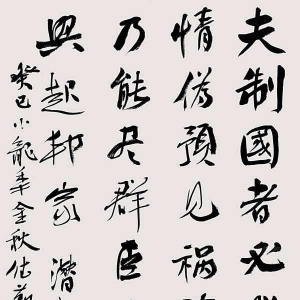 夫制國者必
情偽預見禍
乃能尽群臣
興起邦家潛
癸巳小龍年金秋佑